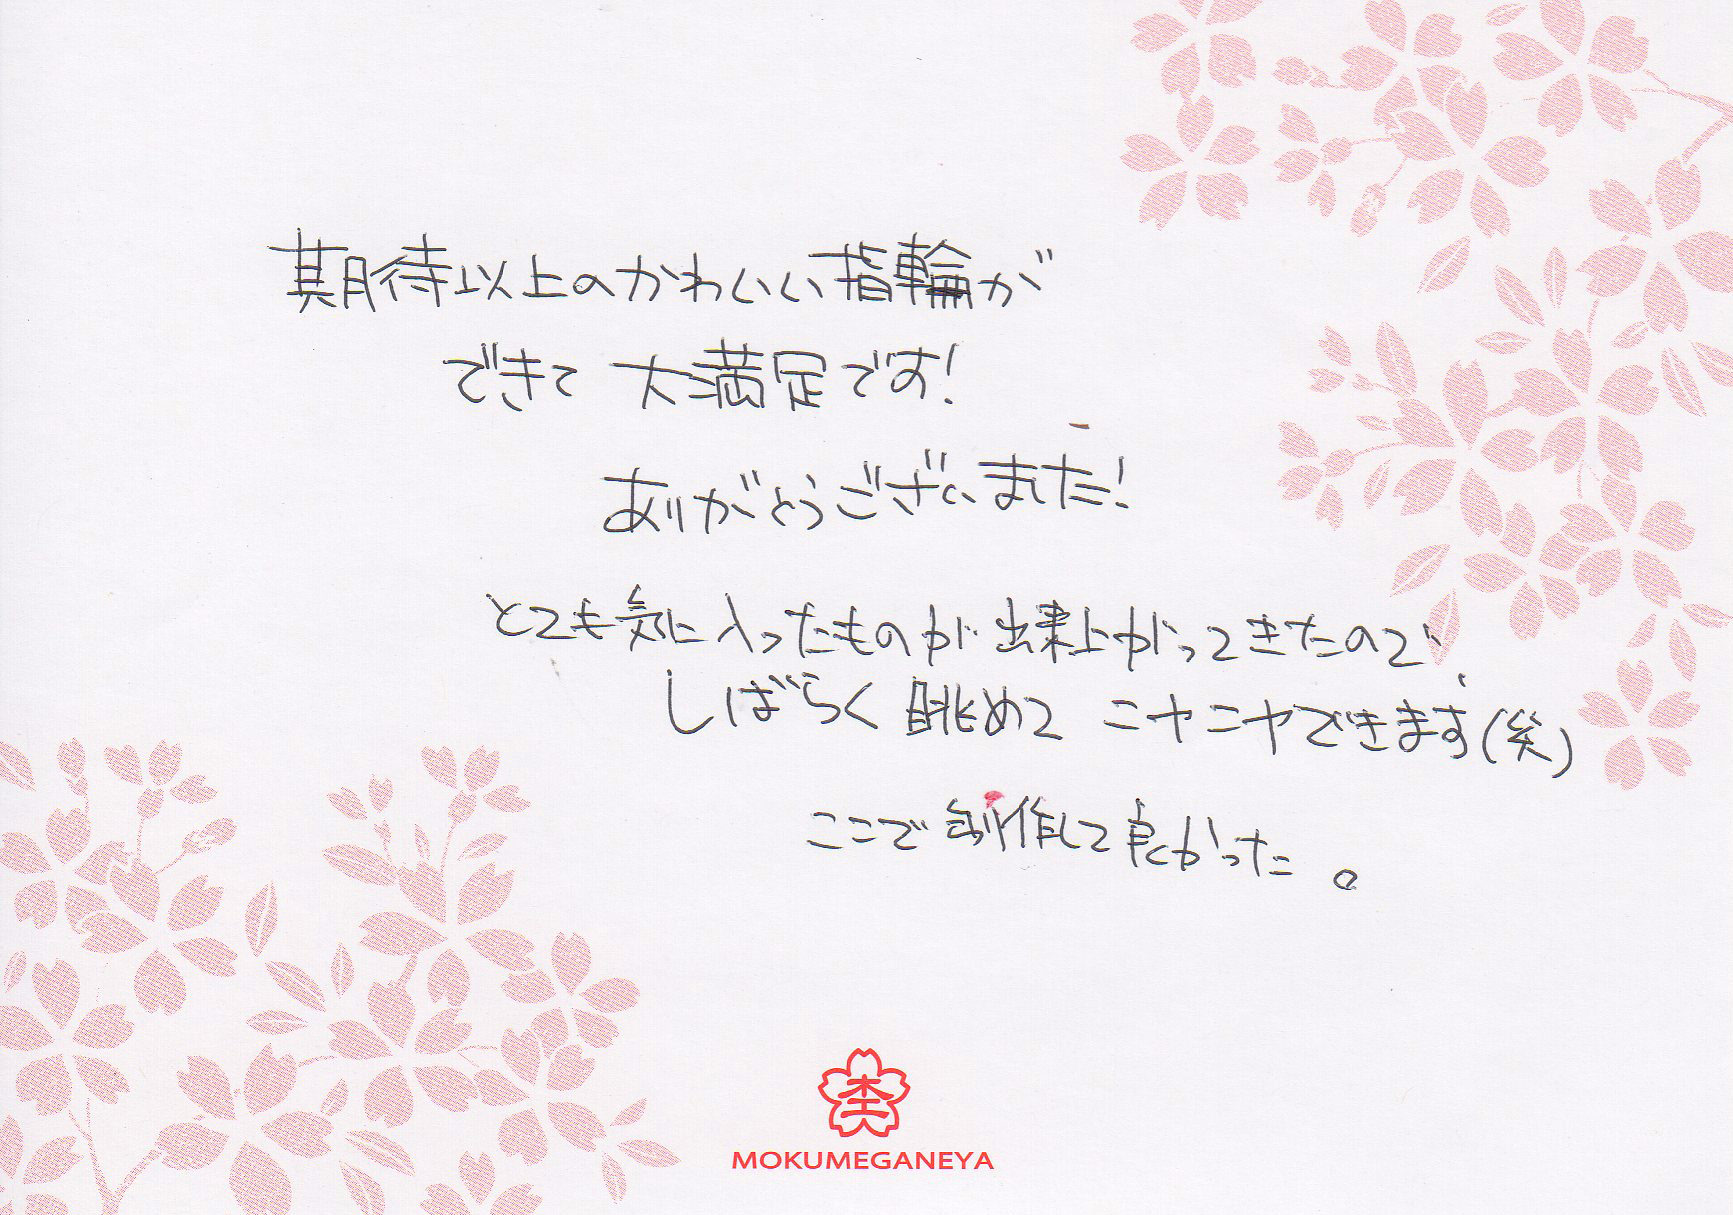 期待以上のかわいい指輪が
できて 大満足です!
ありがとうございました!
とても気に入ったものが出来上がってきたので、
しばらく眺めてニヤニヤできます(笑)
ここで創作して良かった。
MOKUMEGANEYA